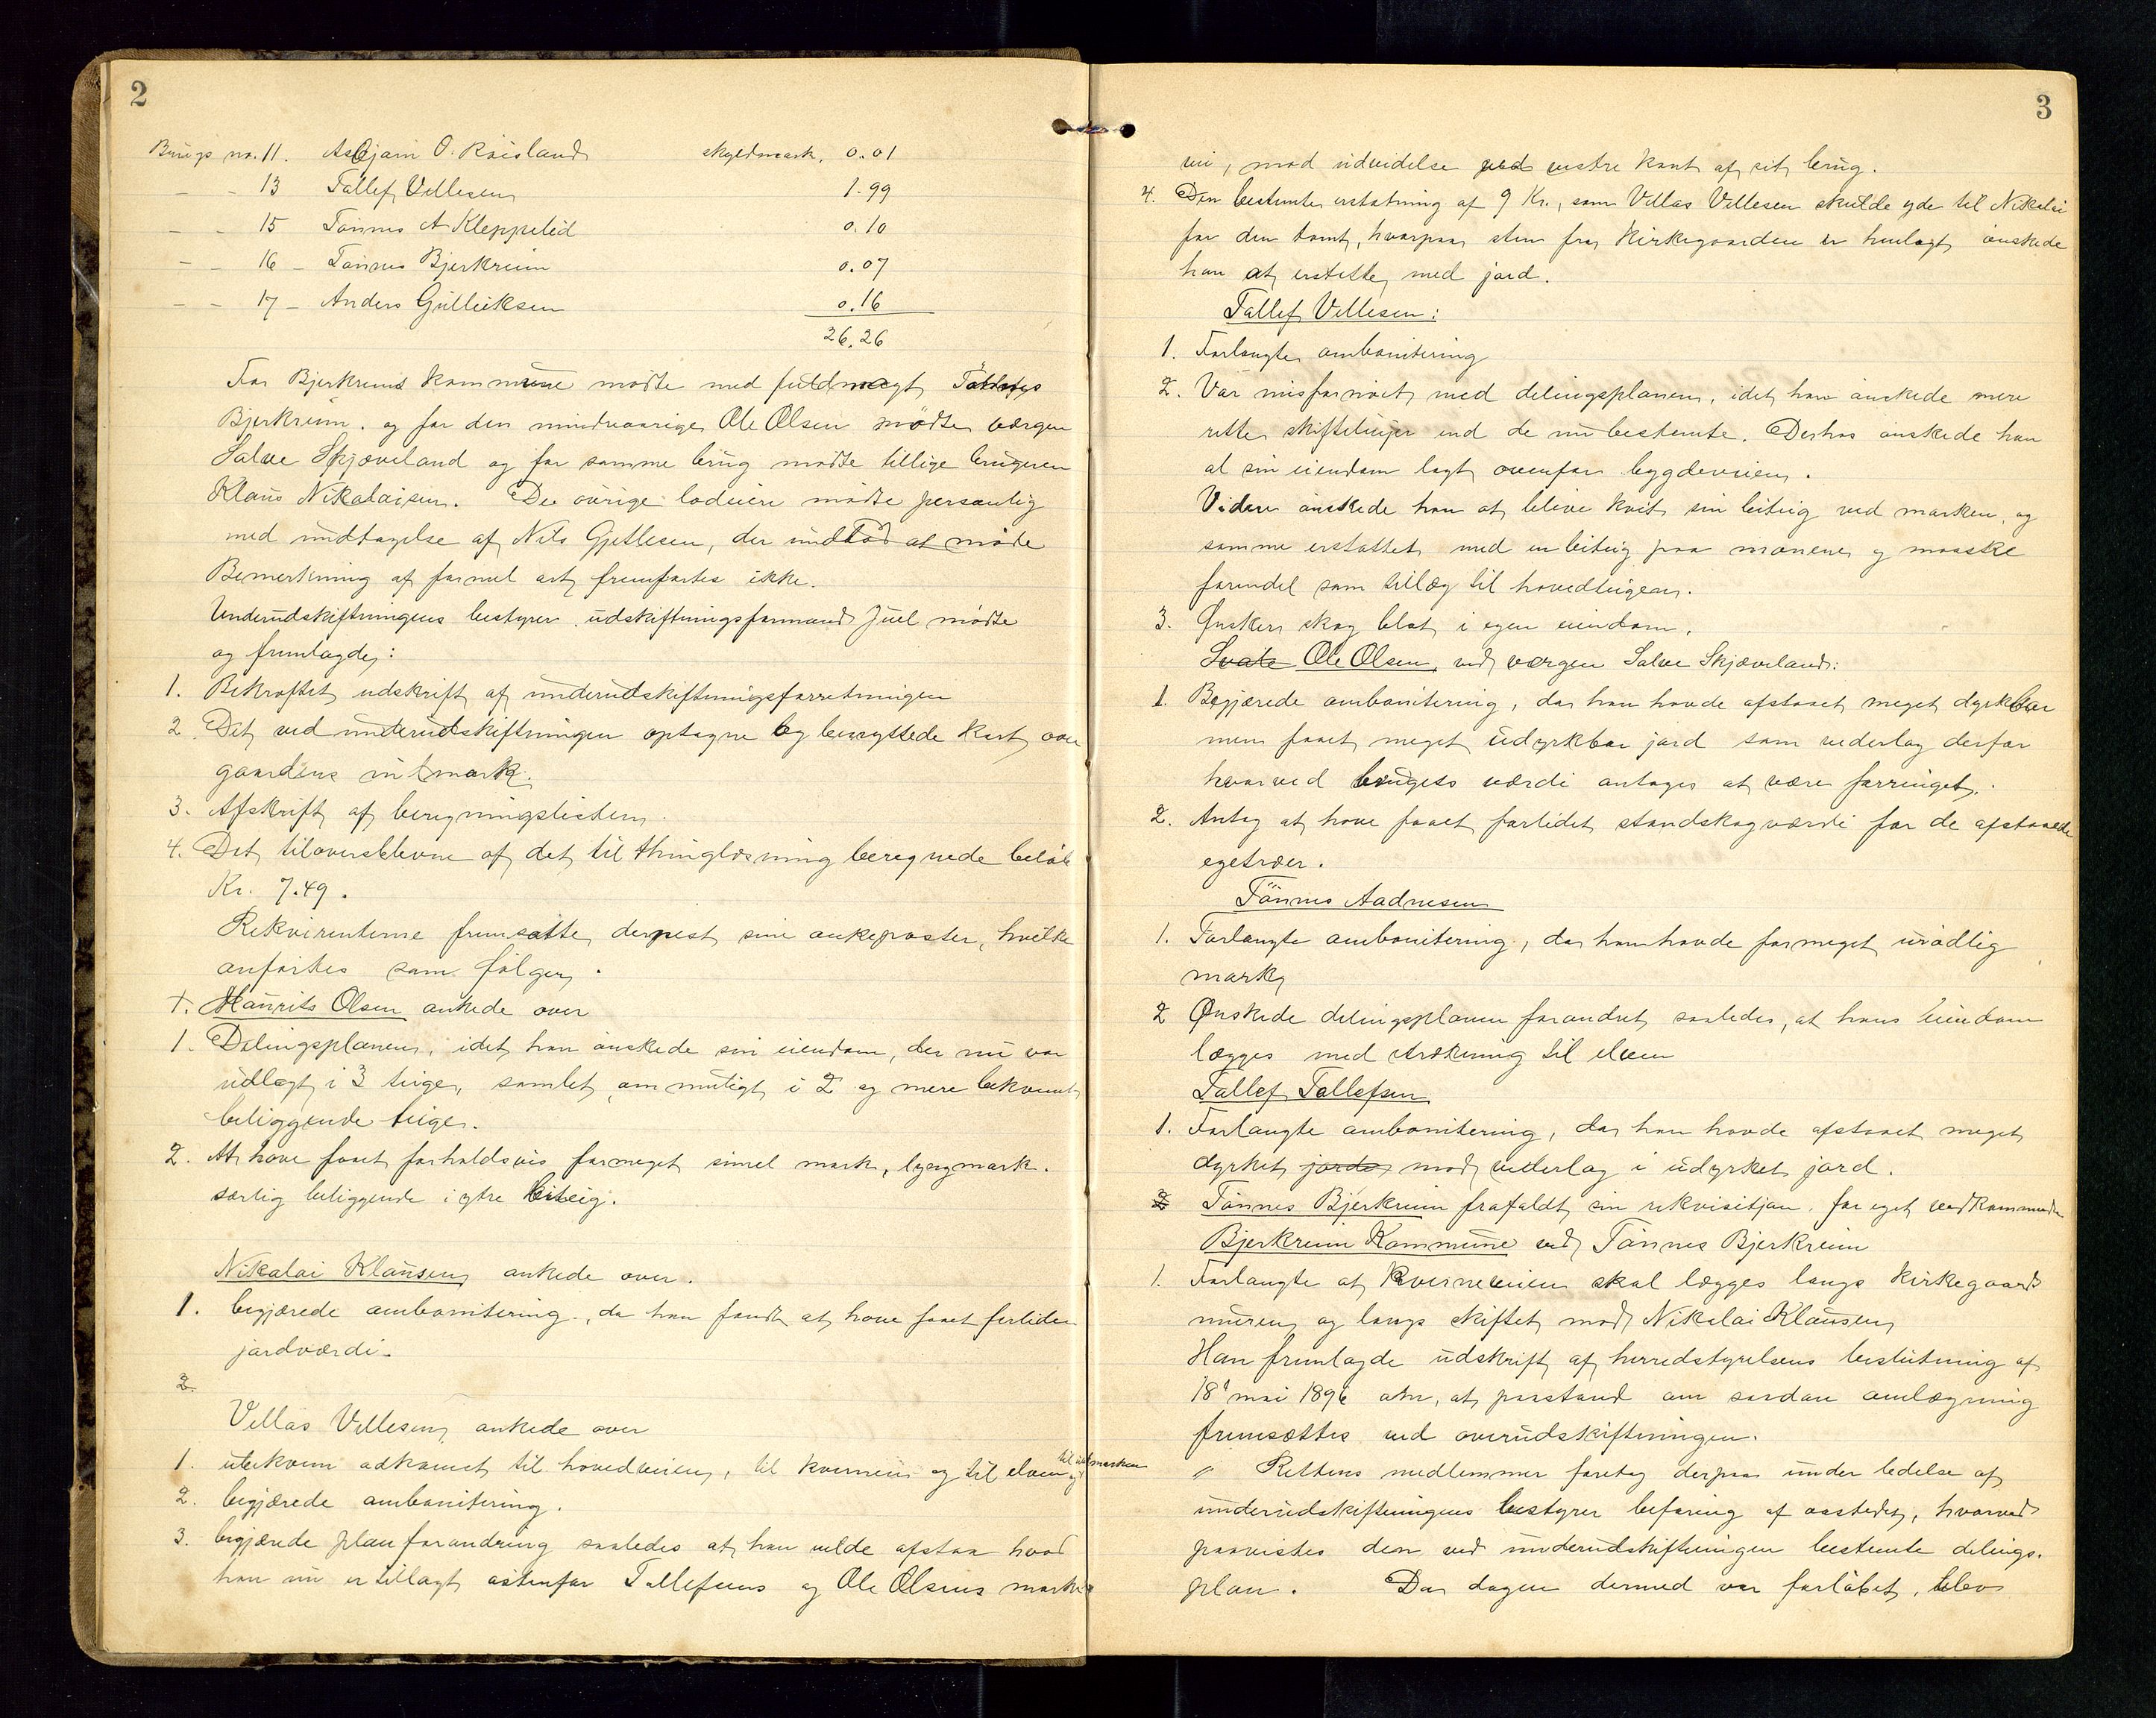 2
Brugs no. 11. Asbjørn O. Røisland skyldmark. 0.01
- - 13 Tallef Villesen 1.99
- - 15 Tønnes A Kleppelid 0.10
- - 16 - Tønnes Bjerkreim 0.07
- - 17 - Anders Gulleiksen 0.16
26.26
For Bjerkreims kommune mødte med fuldmagt Tønnes
Bjerkreim. og for den mindreaarige Ole Olsen mødte værgen
Salve Skjæveland og for samme brug mødte tillige brugeren
Klaus Nikolaisen. De øvrige lodeiere mødte personlig
med undtagelse af Nils Gjetlesen, der undlod at møde
Bemerkning af formel art fremførtes ikke.
Underudskiftningens bestyrer udskiftningsformand Juel mødte
og fremlagde:
1. Bekræftet udskrift af underudskiftningsforretningen
2 Det ved underudskiftningen optagne og benyttede kart over
gaardens indmark.
3. Afskrift af beregningslisten.
4. Det tiloversblevne af det til thinglæsning beregnede beløb
Kr. 7.49.
Rekvirenterne fremsatte dernest sine ankeposter, hvilke
anførtes som følger.
+. Maurits Olsen ankede over
1. Delingsplanen, idet han ønskede sin eiendom, der nu var
udlagt i 3 teiger, samlet om muligt i 2 og mere bekvemt
beliggende teiger.
2. At have faaet forholdsvis formeget simel mark, lyngmark.
særlig beliggende i ytre biteig.
Nikolai Klausen ankede over.
1. begjærede ombonitering, da han fandt at have faaet forliden
jordværdi.
2.
Villas Villesen ankede over
1. ubekvem adkomst til hovedveien, til kvernen og til elven og til udmarken
2. begjærede ombonitering.
3. begjærede planforandring saaledes at han vilde afstaa hvad
han nu er tillagt østenfor Tallefsens og Ole Olsens mark
3
vei, mod udvidelse ved vestre kant af sit brug.
4. Den bestemte erstatning af 9 Kr., som Villas Villesen skulde yde til Nikolai
for den tomt, hvorpaa sten fra Kirkegaarden er henlagt ønskede
han at erstatte med jord.
Tallef Villesen:
1. Forlangte ombonitering
2. Var misfornøiet med delingsplanen, idet han ønskede mere
rette skiftelinjer end de nu bestemte. Derhos ønskede han
al sin eiendom lagt ovenfor bygdeveien.
Videre ønskede han at blive kvit sin biteig ved marken, og
samme erstattet med en biteig paa moeneneog maaske
forendel som tillæg til hovedteigen.
3. Ønsker skog blot i egen eiendom.
Ole Olsen ved værgen Salve Skjæveland:
1. Begjærede ombonitering, da han havde afstaaet meget dyrkbar
men faaet meget udyrkbar jord som vederlag derfor
hvorved brugets værdi antages at være forringet.
2. Antog at have faaet forlidet standskogværdi for de afstaaede
egetræer.
Tønnes Aadnesen
1. Forlangte ombonitering, da han havde formeget uvødlig
mark
2 Ønskede delingsplanen forandret saaledes, at hans eiendom
lægges med strækning til elven
Tallef Tallefsen
1. Forlangte ombonitering, da han havde afstaaet meget
dyrket jorde mod vederlag i udyrket jord.
2 Tønnes Bjerkreim frafaldt sin rekvisitjon for eget vedkommende
Bjerkreim Kommune ved Tønnes Bjerkreim
1. Forlangte at Kverneveien skal lægges langs kirkegaards
muren og langs skiftet mod Nikolai Klausen
Han fremlagde udskrift af herredstyrelsens beslutning af
18' mai 1896 om, at paastand om saadan omlægning
fremsættes ved overudskiftningen.
" Rettens medlemmer foretog derpaa under ledelse af
underudskiftningens bestyrer befaring af aastedet, hvorved
paavistes den ved underudskiftningen bestemte delings-
plan. Da dagen dermed var forløbet, blev